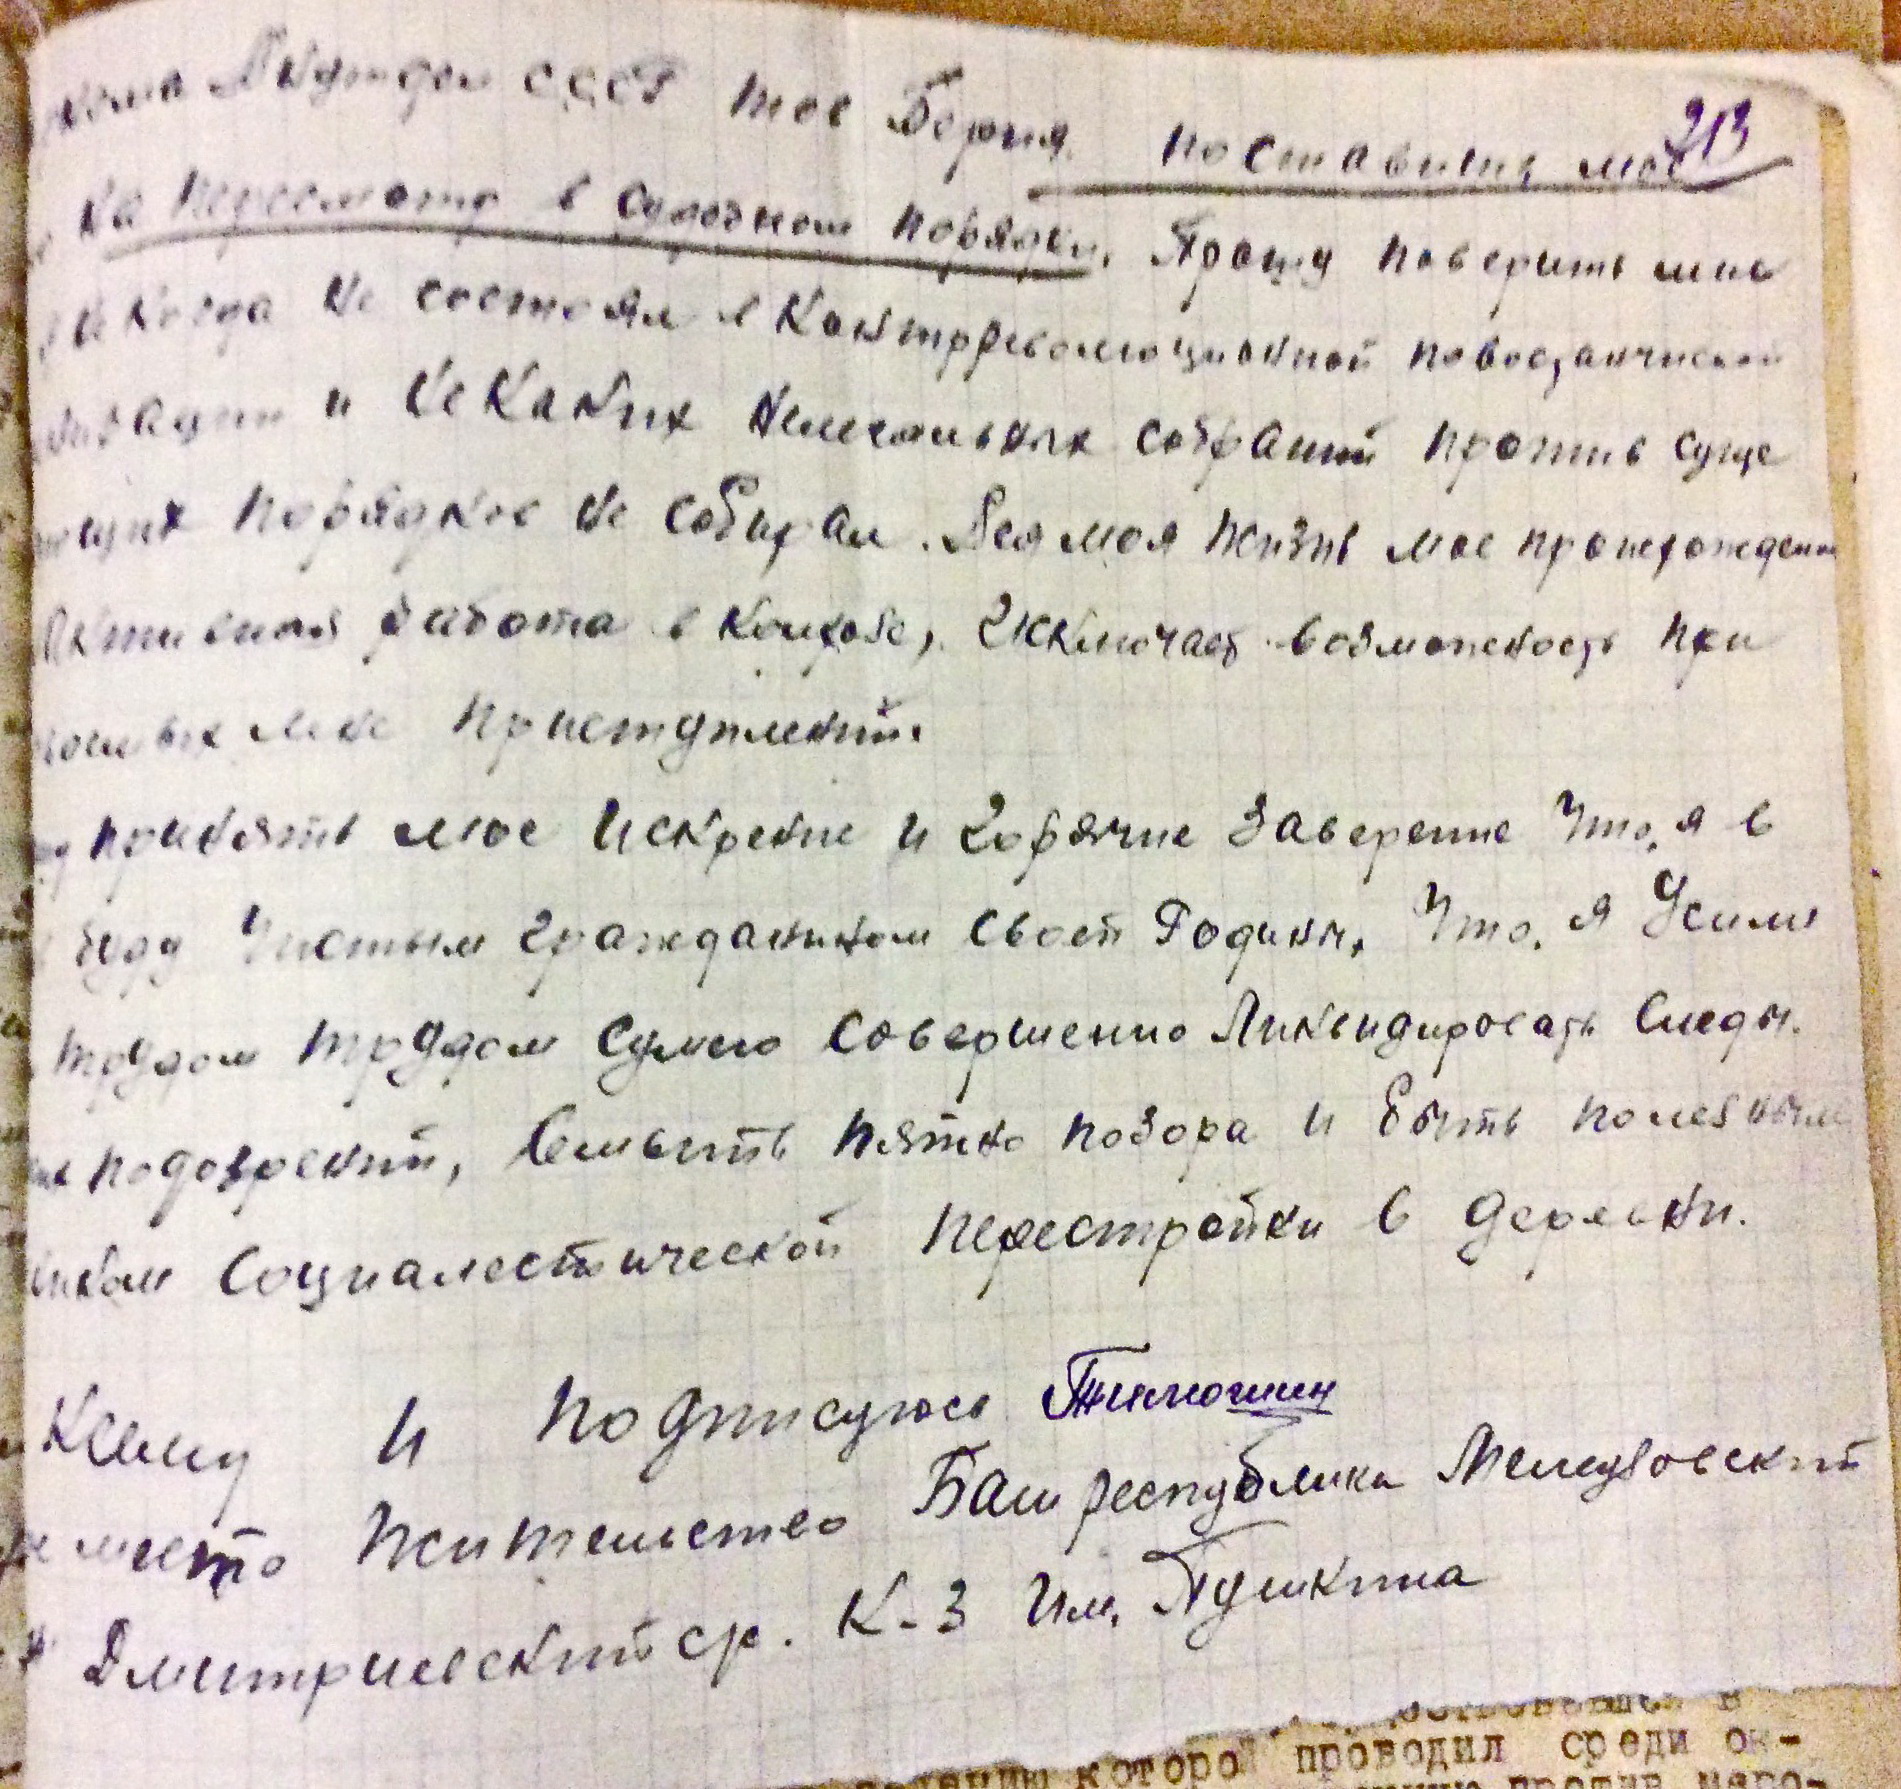 213
СССР тов Берия. поставить мое
на пересмотр в судебном порядки. Прошу поверить мне
некогда не состоял в Контрреволюционной повостанческой
и не каких нелегальных собраний против суще
ющих порядков не собирал. Вся моя жизнь мое происхождение
Активная работа в колхозе, исключает возможность при
мне приступлений.
принять мое искрение и горячие заверение что, я в
буду Чистым гражданином своей Родины, Что, я Усили
трудом трудом сумею совершенно Ликвидировать Следы.
подозрений, смыть пятно позора и быть полезным
ником Социалестической перестройки в деревни.
К сему и подписуюсь Тимошин
место жительство Башреспублики Мелеузовский
Дмитриевский ср. К-З Им, Пушкина
которой проводил среди ок-
против